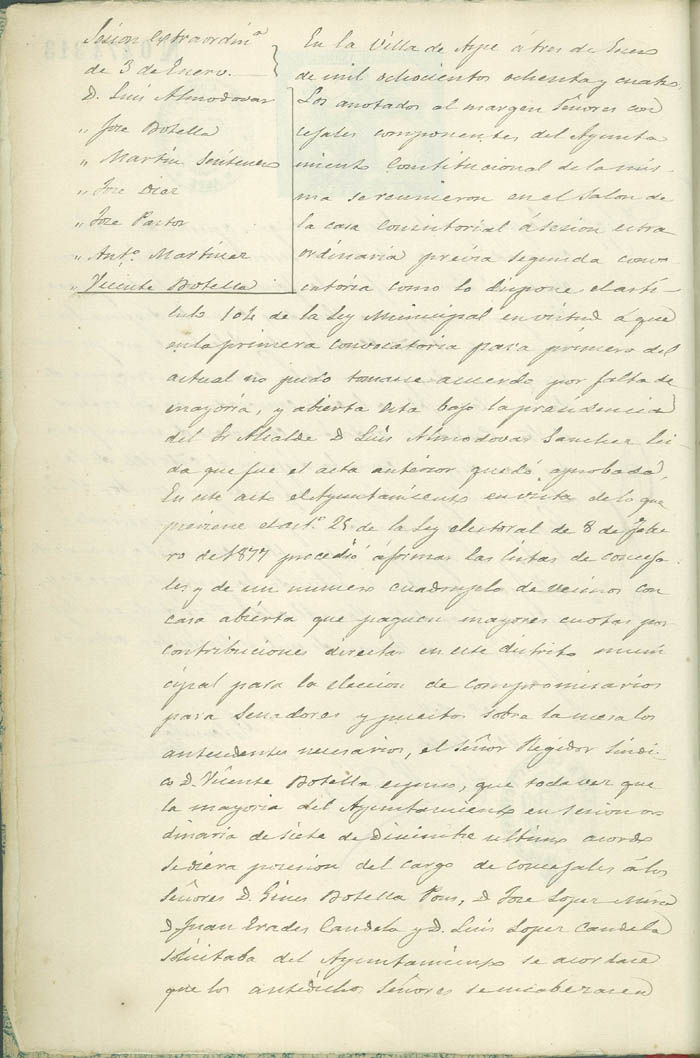 Sesion extraordinª
de 3 de Enero.
D. Luis Almodovar
" Jose Botella
" Martin Sentenero
" Jose Diaz
" Jose Pastor
" Antº Martinez
" Vicente Botella
En la Villa de Aspe á tres de Enero
de mil ochocientos ochenta y cuatro.
Los anotados al margen Señores con
cejales componentes del Ayunta
miento Constitucional de la mis
ma se reunieron en el Salon de
la casa Consistorial á sesion extra
ordinaria previa segunda convo
catoria como lo dispone el artí-
culo 104 de la Ley Municipal en virtud a que
en la primera convocatoria para primero del
actual no pudo tomarse acuerdo por falta de
mayoria, y abierta esta bajo la presidencia
del Sr Alcalde D. Luis Almodovar Sanchez lei
da que fue el acta anterior quedó aprobada.
En este acto el Ayuntamiento en vista de lo que
previene el artº 25 de la Ley electoral de 8 de Febre
ro de 1877 procedió á formar las listas de conceja-
les y de un numero cuadruplo de vecinos con
casa abierta que paguen mayores cuotas por
contribuciones directas en este distrito muni
cipal para la eleccion de compromisarios
para Senadores y puestos sobre la mesa los
antecedentes necesarios, el Señor Regidor Sindi-
co D. Vicente Botella expuso, que toda vez que
la mayoria del Ayuntamiento en sesion or
dinaria de siete de Diciembre ultimo acordó
se diera posesion del cargo de concejales á los
Señores D. Gines Botella Pons, D. Jose Lopez Mira
D. Juan Erades Candela y D. Luis Lopez Candela
solicitaba del Ayuntamiento se acordase
que los antedichos Señores se encabezasen